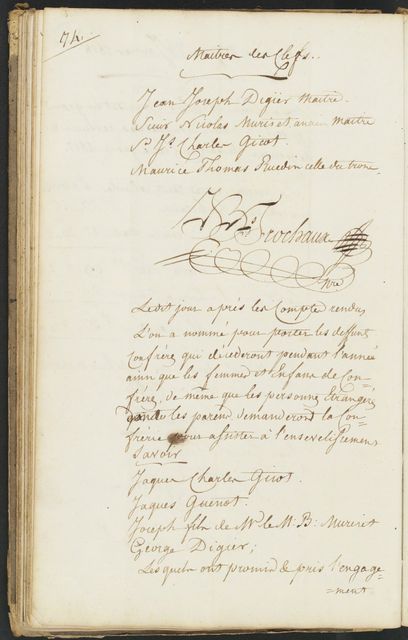 74.
Maitres des Clefs.
Jean Joseph Digier Maitre.
Sieur Nicolas Muriset ancien Maitre
Sr. Js. Charles Girot.
Maurice Thomas Ruedin celle du tronc.
Trochaux
Ledit jour après les Compte rendus
L'on a nommé pour porter les deffunt
Confrére qui decederont pendant l'année
ainsi que les femmes et Enfans de Con=
frére, de même que les personne Etrangere
quand les parens demanderont la Con
frérie pour assister à l'ensevelissement
Savoir
Jaques Charles Girot.
Jaques Quenot.
Joseph fils de Mr. le M: B: Muriset
George Digier;
Lesquels ont promis de près l'engage
=ment